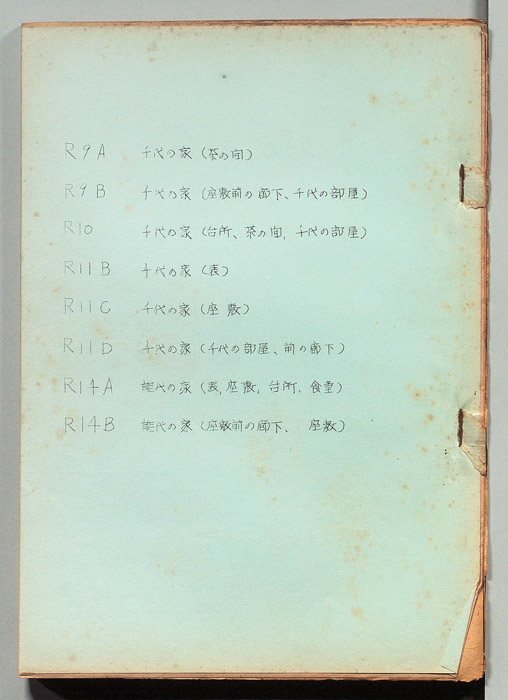 R9A 千代の家(茶の間)
R9B 千代の家(座敷前の廊下、千代の部屋)
R10 千代の家(台所、茶の間、千代の部屋)
R11B 千代の家(表)
R11C 千代の家(座敷)
R11D 千代の家(千代の部屋、前の廊下)
R14A 能代の家(表、座敷、台所、食堂)
R14B 能代の家(座敷前の廊下、 座敷)